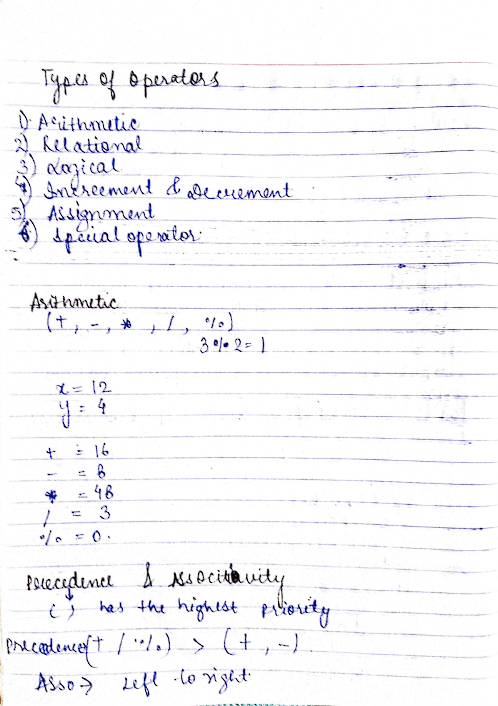 Types of operators
1) Arithmetic
2) Relational
3) Logical
4) Increement & Decrement
5) Assignment
6) Special operator.
Arithmetic
(+, -, *, /, %)
3 % 2 = 1
x = 12
y = 4
+ = 16
- = 8
* = 48
/ = 3
% = 0.
Precedence & Associtivity
( ) has the highest priority
Precedence( + / % ) > ( + , - )
Asso → Left to right.